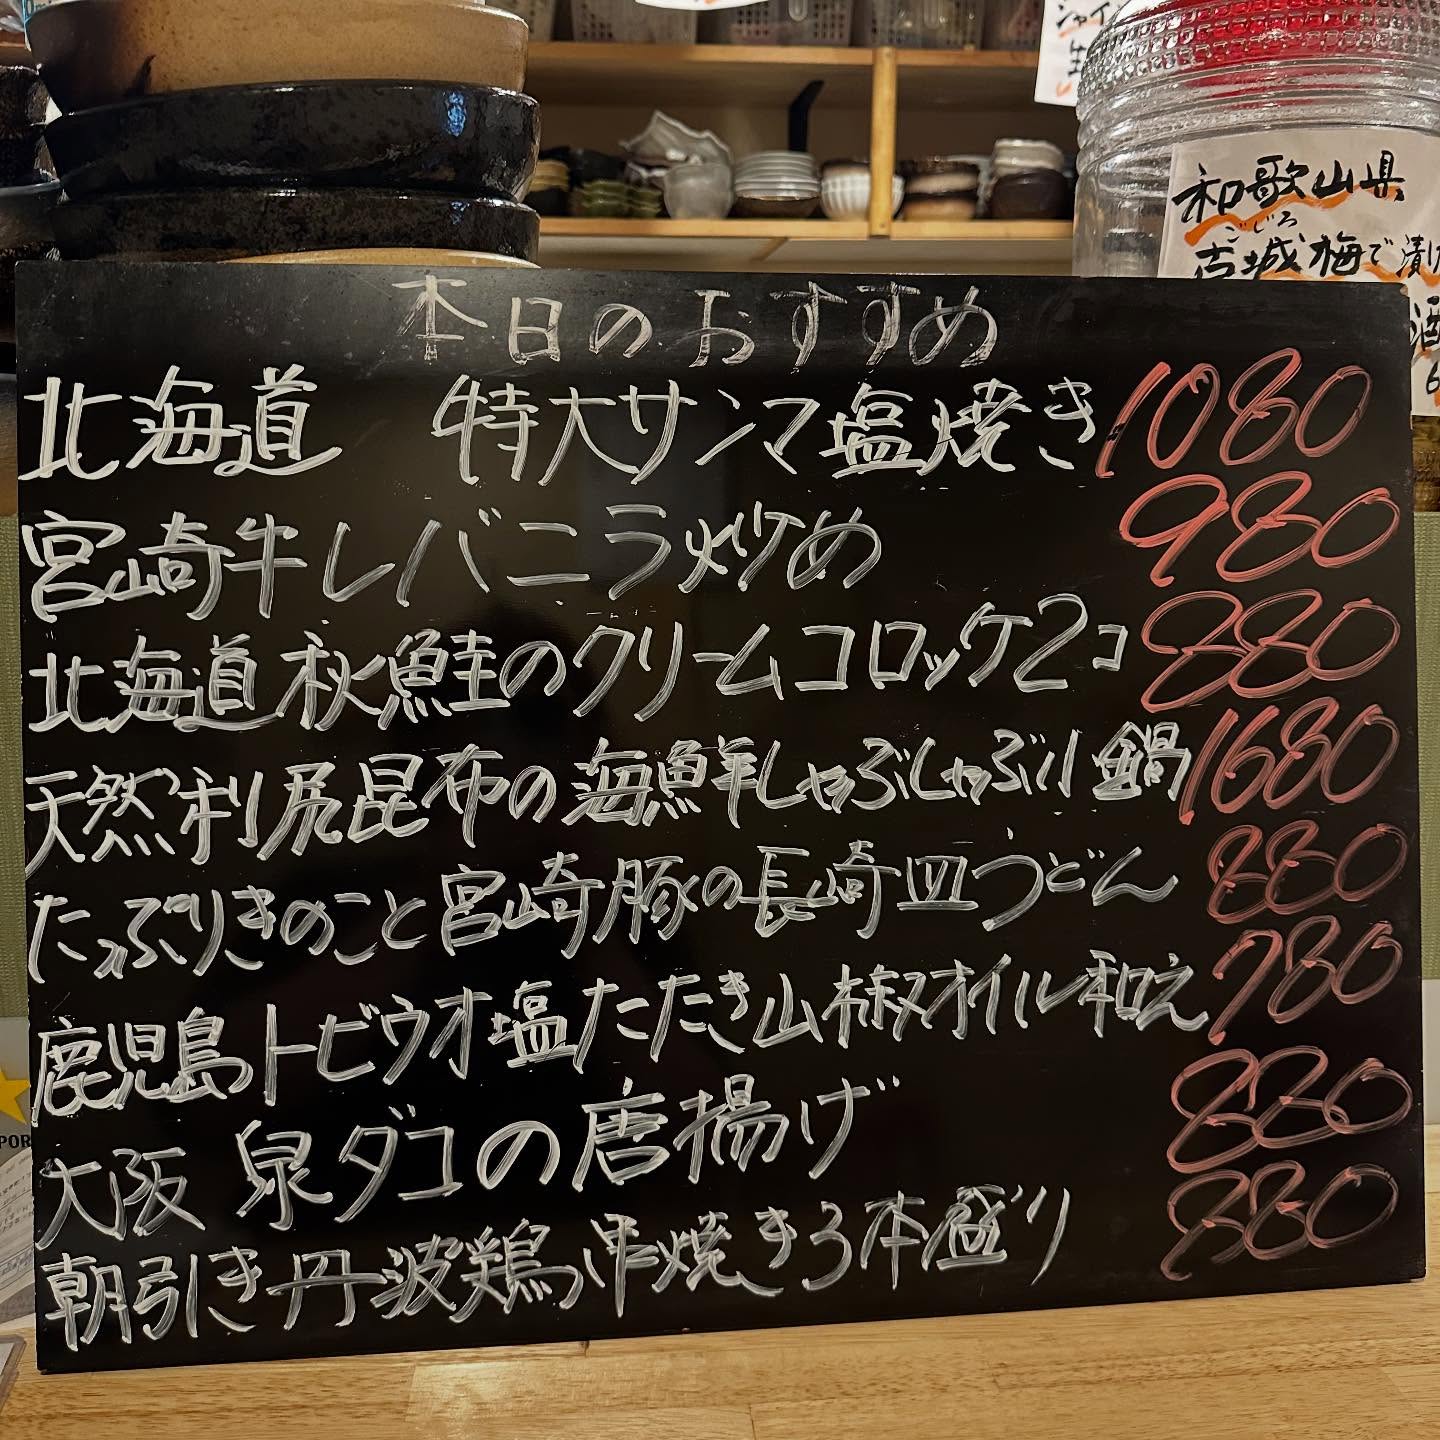 本日のおすすめ
北海道 特大サンマ塩焼き 1080
宮崎牛レバニラ炒め 980
北海道秋鮭のクリームコロッケ2コ 880
天然利尻昆布の海鮮しゃぶしゃぶ小鍋 1680
たっぷりきのこと宮崎豚の長崎皿うどん 880
鹿児島トビウオ塩たたき山椒オイル和え 780
大阪 泉ダコの唐揚げ 880
朝引き丹波鶏串焼き3本盛り 880
和歌山県
ごじろ
古城梅で漬け
酒